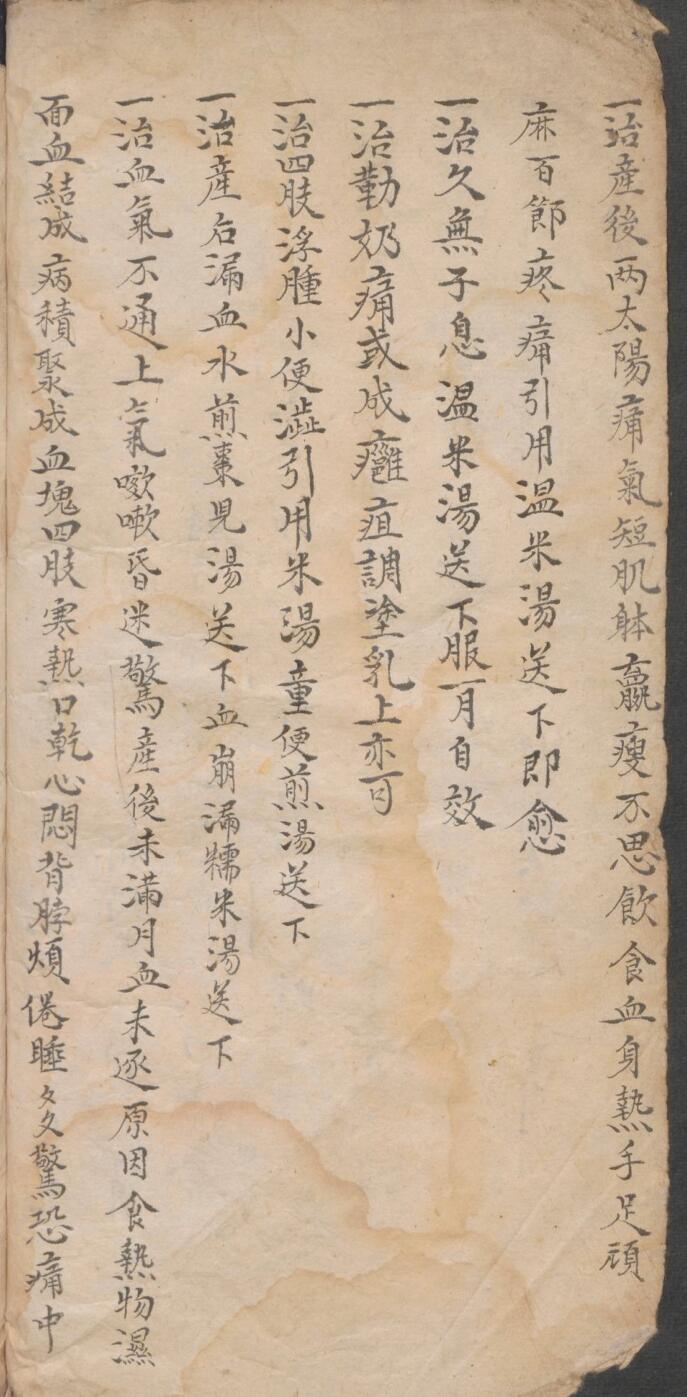 一治產後两太陽痛氣短肌躰羸瘦不思飲食血身熱手足頑
麻百節疼痛引用温米湯送下即愈
一治久無子息温米湯送下服一月自效
一治勒奶痛或成癰疽調塗乳上亦可
一治四肢浮腫小便澁引用米湯童便煎湯送下
一治產后漏血水煎棗児湯送下血崩漏糯米湯送下
一治血氣不通上氣嗽嗽昏迷驚產後未滿月血未逐原因食熱物濕
面血結成病積聚成血塊四肢寒熱口乾心悶背脖煩倦睡多驚恐痛中